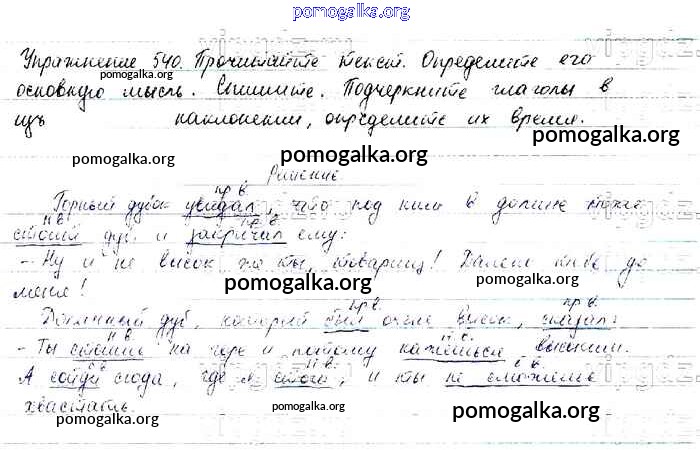 pomogalka.org
Упражнение 540. Прочитайте текст. Определите его
pomogalka.org
основную мысль. Спишите. Подчеркните глаголы в
изъ наклонении, определите их время.
pomogalka.org
pomogalka.org pomogalka.org
Решение
пр в.
Горный дубок увидал, что под ним в долине тоже
н в. пр в.
стоит дуб и закричал ему:
pomogalka.org
– Ну и не высок же ты, товарищ! Далеко тебе до
меня!
pomogalka.org pomogalka.org
пр в. пр в.
Долинный дуб, который был очень высок, сказал:
н в. н в.
– Ты стоишь на горе и потому кажешься высоким.
б в. н в. б в.
А сойди сюда, где я стою, и ты не сможешь
хвастать.
pomogalka.org pomogalka.org pomogalka.org